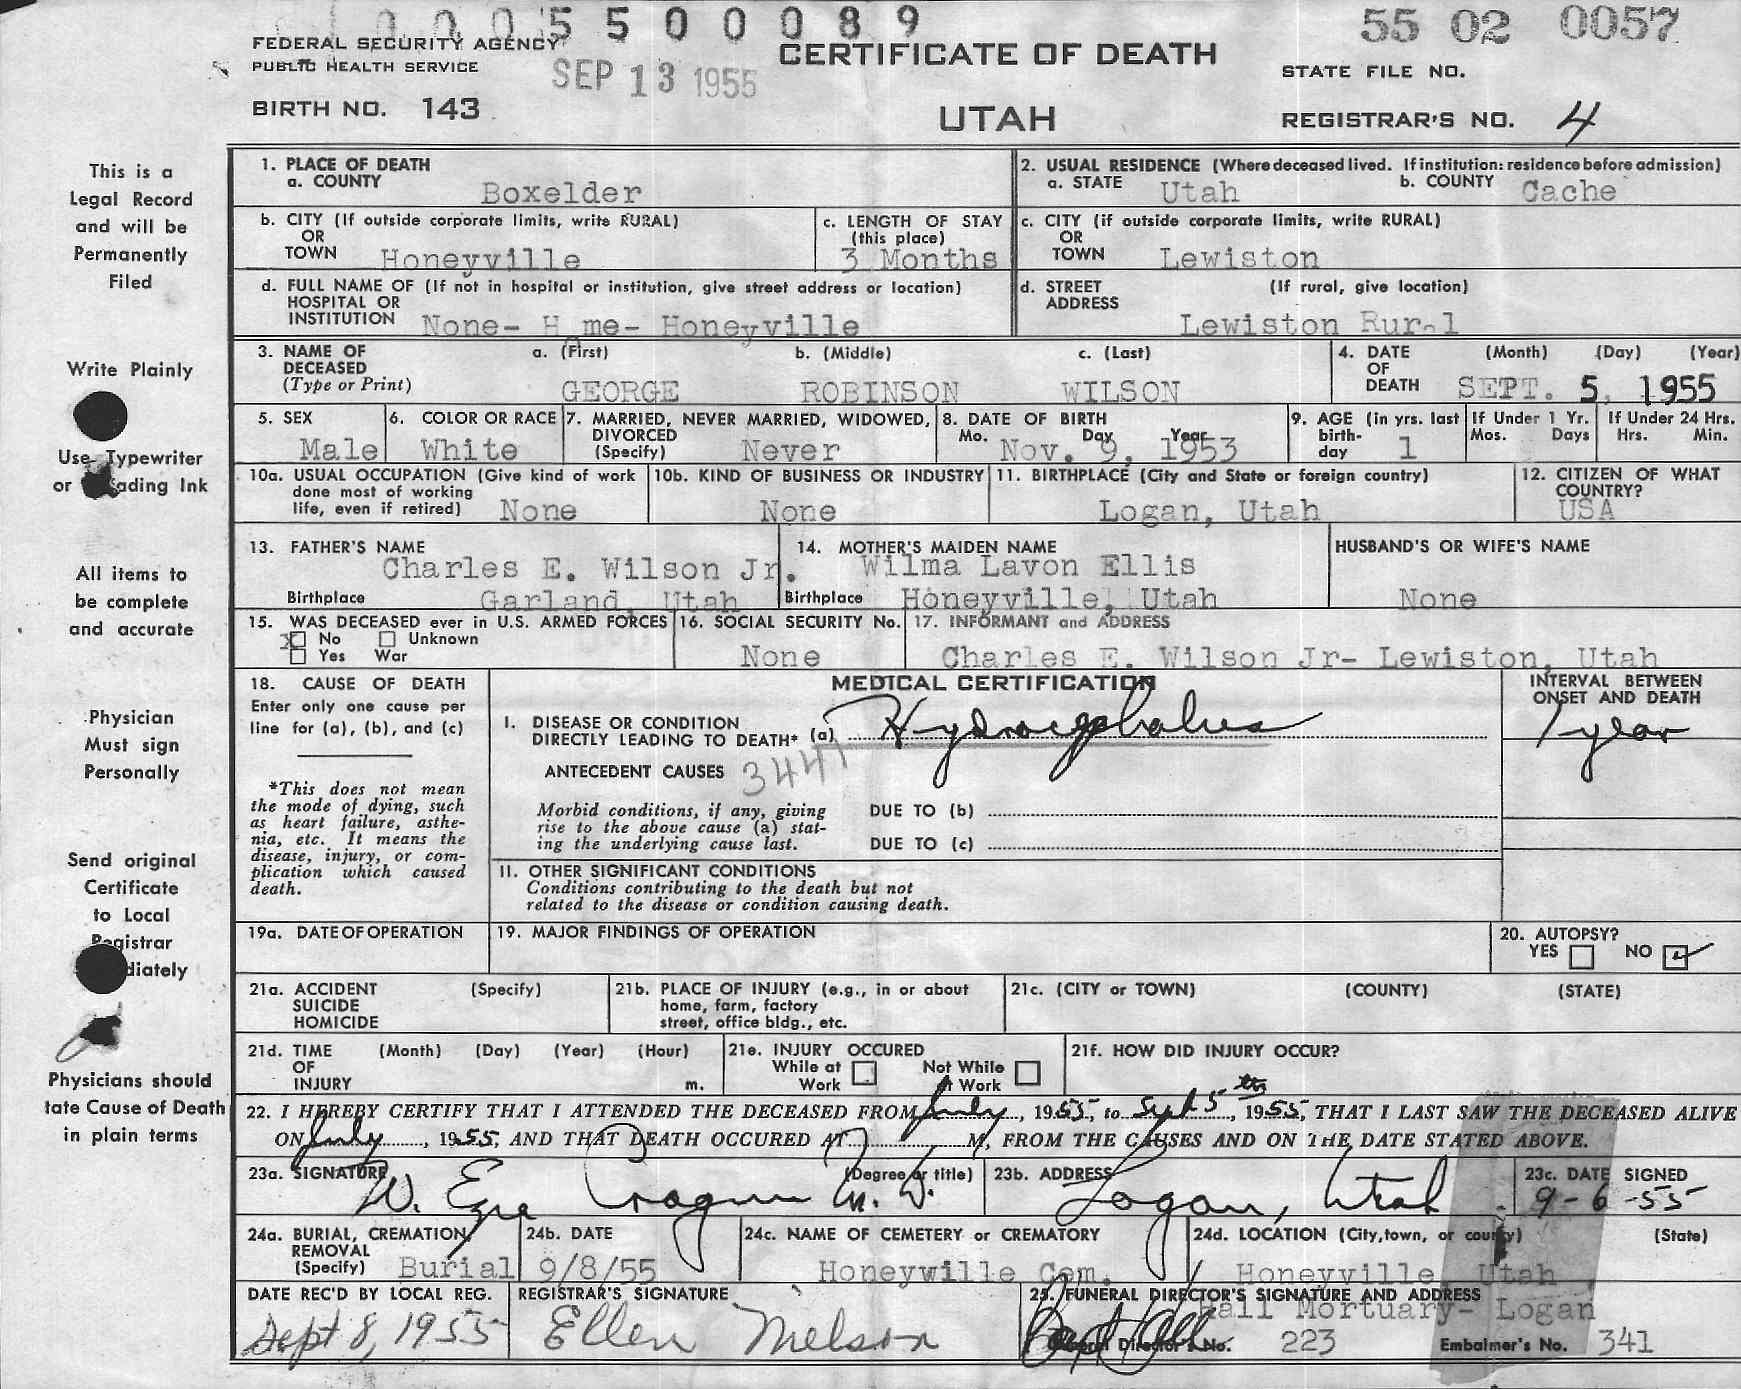 0 0 0 5 5 0 0 0 8 9
55 02 0057
FEDERAL SECURITY AGENCY
PUBLIC HEALTH SERVICE
SEP 13 1955
CERTIFICATE OF DEATH
STATE FILE NO.
BIRTH NO. 143
UTAH
REGISTRAR'S NO. 4
This is a
Legal Record
and will be
Permanently
Filed
Write Plainly
Use Typewriter
or ading Ink
All items to
be complete
and accurate
Physician
Must sign
Personally
Send original
Certificate
to Local
Registrar
diately
Physicians should
tate Cause of Death
in plain terms
1. PLACE OF DEATH
a. COUNTY Boxelder
2. USUAL RESIDENCE (Where deceased lived. If institution: residence before admission)
a. STATE Utah b. COUNTY Cache
b. CITY (If outside corporate limits, write RURAL)
OR
TOWN Honeyville
c. LENGTH OF STAY
(this place)
3 Months
c. CITY (if outside corporate limits, write RURAL)
OR
TOWN Lewiston
d. FULL NAME OF (If not in hospital or institution, give street address or location)
HOSPITAL OR
INSTITUTION None- H me- Honeyville
d. STREET (If rural, give location)
ADDRESS
Lewiston Rural
3. NAME OF DECEASED
(Type or Print)
a. (First) b. (Middle) c. (Last)
GEORGE ROBINSON WILSON
4. DATE OF DEATH (Month) (Day) (Year)
SEPT. 5, 1955
5. SEX
Male
6. COLOR OR RACE
White
7. MARRIED, NEVER MARRIED, WIDOWED,
DIVORCED
(Specify) Never
8. DATE OF BIRTH
Mo. Day Year
Nov. 9, 1953
9. AGE (in yrs. last
birth-
day 1
If Under 1 Yr.
Mos. Days
If Under 24 Hrs.
Hrs. Min.
10a. USUAL OCCUPATION (Give kind of work
done most of working
life, even if retired) None
10b. KIND OF BUSINESS OR INDUSTRY
None
11. BIRTHPLACE (City and State or foreign country)
Logan, Utah
12. CITIZEN OF WHAT
COUNTRY?
USA
13. FATHER'S NAME
Charles E. Wilson Jr.
Birthplace Garland, Utah
14. MOTHER'S MAIDEN NAME
Wilma Lavon Ellis
Birthplace Honeyville, Utah
HUSBAND'S OR WIFE'S NAME
None
15. WAS DECEASED ever in U.S. ARMED FORCES
X No Unknown
Yes War
16. SOCIAL SECURITY No.
None
17. INFORMANT and ADDRESS
Charles E. Wilson Jr- Lewiston, Utah
18. CAUSE OF DEATH
Enter only one cause per
line for (a), (b), and (c)
*This does not mean
the mode of dying, such
as heart failure, asthe-
nia, etc. It means the
disease, injury, or com-
plication which caused
death.
MEDICAL CERTIFICATION
INTERVAL BETWEEN
ONSET AND DEATH
I. DISEASE OR CONDITION
DIRECTLY LEADING TO DEATH* (a) Hydrocephalus
1 year
ANTECEDENT CAUSES 344
Morbid conditions, if any, giving
rise to the above cause (a) stat-
ing the underlying cause last.
DUE TO (b)
DUE TO (c)
11. OTHER SIGNIFICANT CONDITIONS
Conditions contributing to the death but not
related to the disease or condition causing death.
19a. DATE OF OPERATION
19. MAJOR FINDINGS OF OPERATION
20. AUTOPSY?
YES NO
21a. ACCIDENT (Specify)
SUICIDE
HOMICIDE
21b. PLACE OF INJURY (e.g., in or about
home, farm, factory
street, office bldg., etc.
21c. (CITY or TOWN) (COUNTY) (STATE)
21d. TIME (Month) (Day) (Year) (Hour)
OF
INJURY m.
21e. INJURY OCCURED
While at Work Not While at Work
21f. HOW DID INJURY OCCUR?
22. I HEREBY CERTIFY THAT I ATTENDED THE DECEASED FROM July, 1955, to Sept 5th, 1955, THAT I LAST SAW THE DECEASED ALIVE
ON July, 1955, AND THAT DEATH OCCURED AT M, FROM THE CAUSES AND ON THE DATE STATED ABOVE.
23a. SIGNATURE (Degree or title)
W. Ezra Cragun M. D.
23b. ADDRESS
Logan, Utah
23c. DATE SIGNED
9-6-55
24a. BURIAL, CREMATION,
REMOVAL
(Specify) Burial
24b. DATE
9/8/55
24c. NAME OF CEMETERY or CREMATORY
Honeywille Cem.
24d. LOCATION (City, town, or county) (State)
Honeyville, Utah
DATE REC'D BY LOCAL REG.
Sept 8, 1955
REGISTRAR'S SIGNATURE
Ellen Nielson
25. FUNERAL DIRECTOR'S SIGNATURE AND ADDRESS
Hall Mortuary- Logan
Funeral Director's No. 223 Embalmer's No. 341